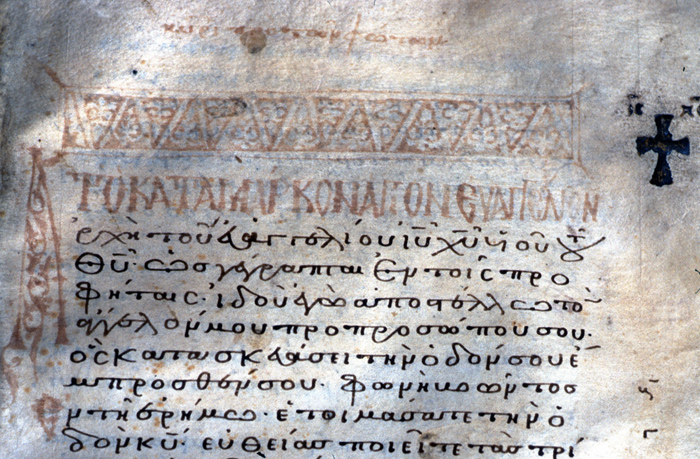 προ των φωτων
ΤΟ ΚΑΤΑ ΜΑΡΚΟΝ ΑΓΙΟΝ ΕΥΑΓΓΕΛΙΟΝ
Ἀρχὴ τοῦ εὐαγγελίου ἰῦ χῦ υἱοῦ τοῦ
θῦ· ὡς γέγραπται ἐν τοῖς προ
φήταις· ἰδοὺ ἐγὼ ἀποστέλλω τὸν
ἄγγελόν μου πρὸ προσώπου σου·
ὃς κατασκευάσει τὴν ὁδόν σου ἔ
μπροσθέν σου· φωνὴ βοῶντος
ἐν τῆ ἐρήμω· ἑτοιμάσατε τὴν ὁ
δὸν κῦ· εὐθείας ποιεῖτε τὰς τρί